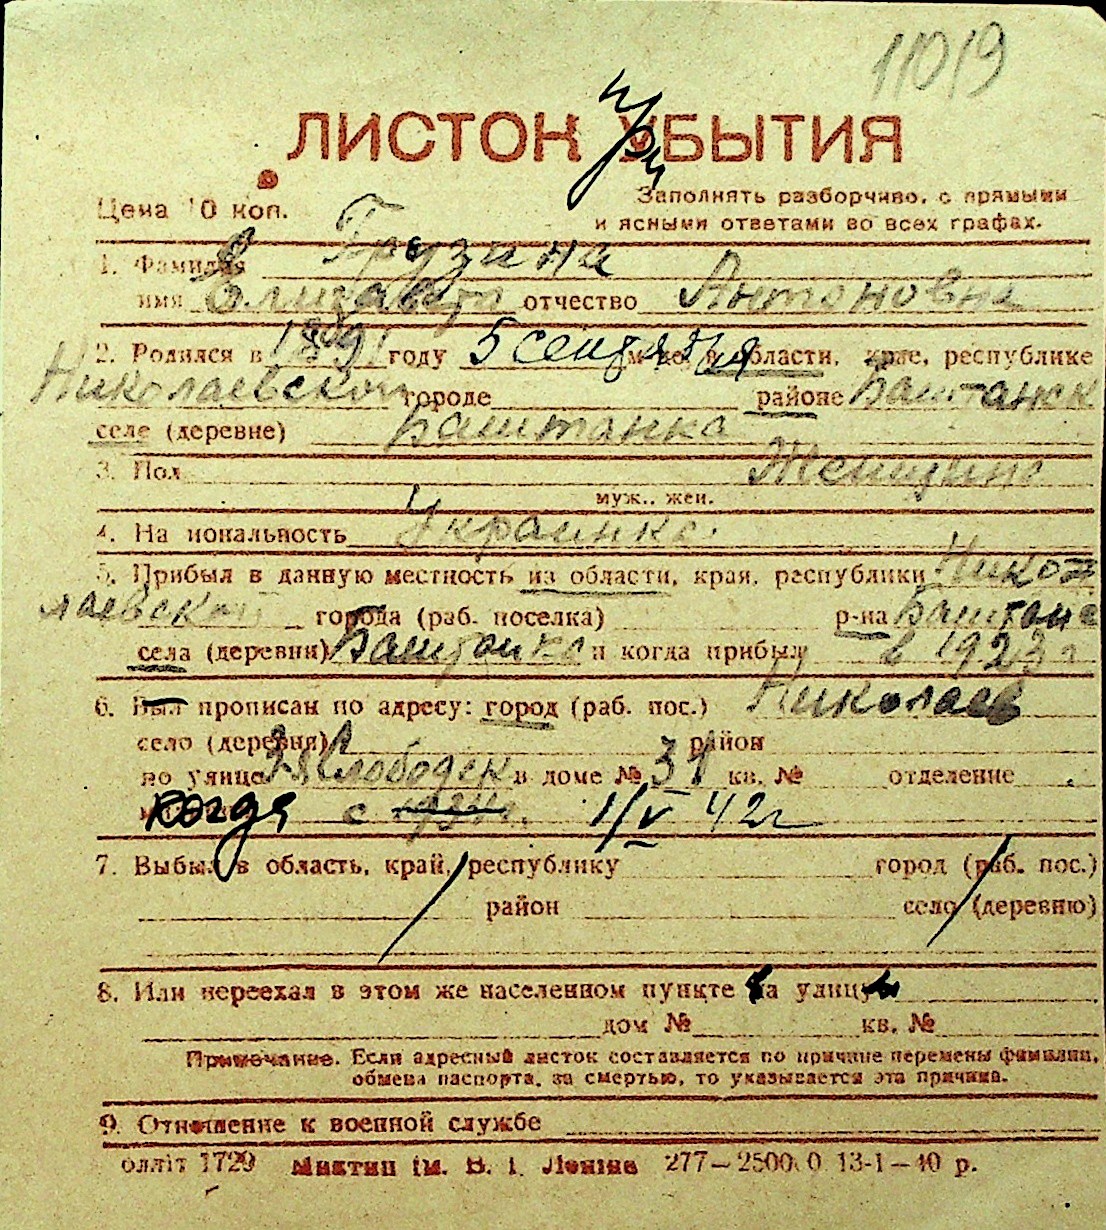 11019
ЛИСТОК УБЫТИЯ
при
Цена 10 коп.
Заполнять разборчиво, с прямыми
и ясными ответами во всех графах.
1. Фамилия Грузина
имя Елизавета отчество Антоновна
2. Родился в 1891 году 5 сентября м-це, в области, крае, республике
Николаевской городе районе Баштанск
селе (деревне) Баштанка
3. Пол Женщина
муж., жен.
4. Национальность Украинка
5. Прибыл в данную местность из области, края, республики Нико
лаевской города (раб. поселка) р-на Баштанс
села (деревни) Баштанка и когда прибыл в 1923 г
6. Был прописан по адресу: город (раб. пос.) Николаев
село (деревня) район
по улице 3я Слободск в доме № 31 кв. № отделение
когда с 1934г. 1/V 42г
7. Выбыл в область, край, республику город (раб. пос.)
район село (деревню)
8. Или переехал в этом же населенном пункте на улицу
дом № кв. №
Примечание. Если адресный листок составляется по причине перемены фамилии,
обмена паспорта, за смертью, то указывается эта причина.
9. Отношение к военной службе
оллiт 1729 Миктип iм. В. I. Ленiна 277—25000 13-1—40 р.